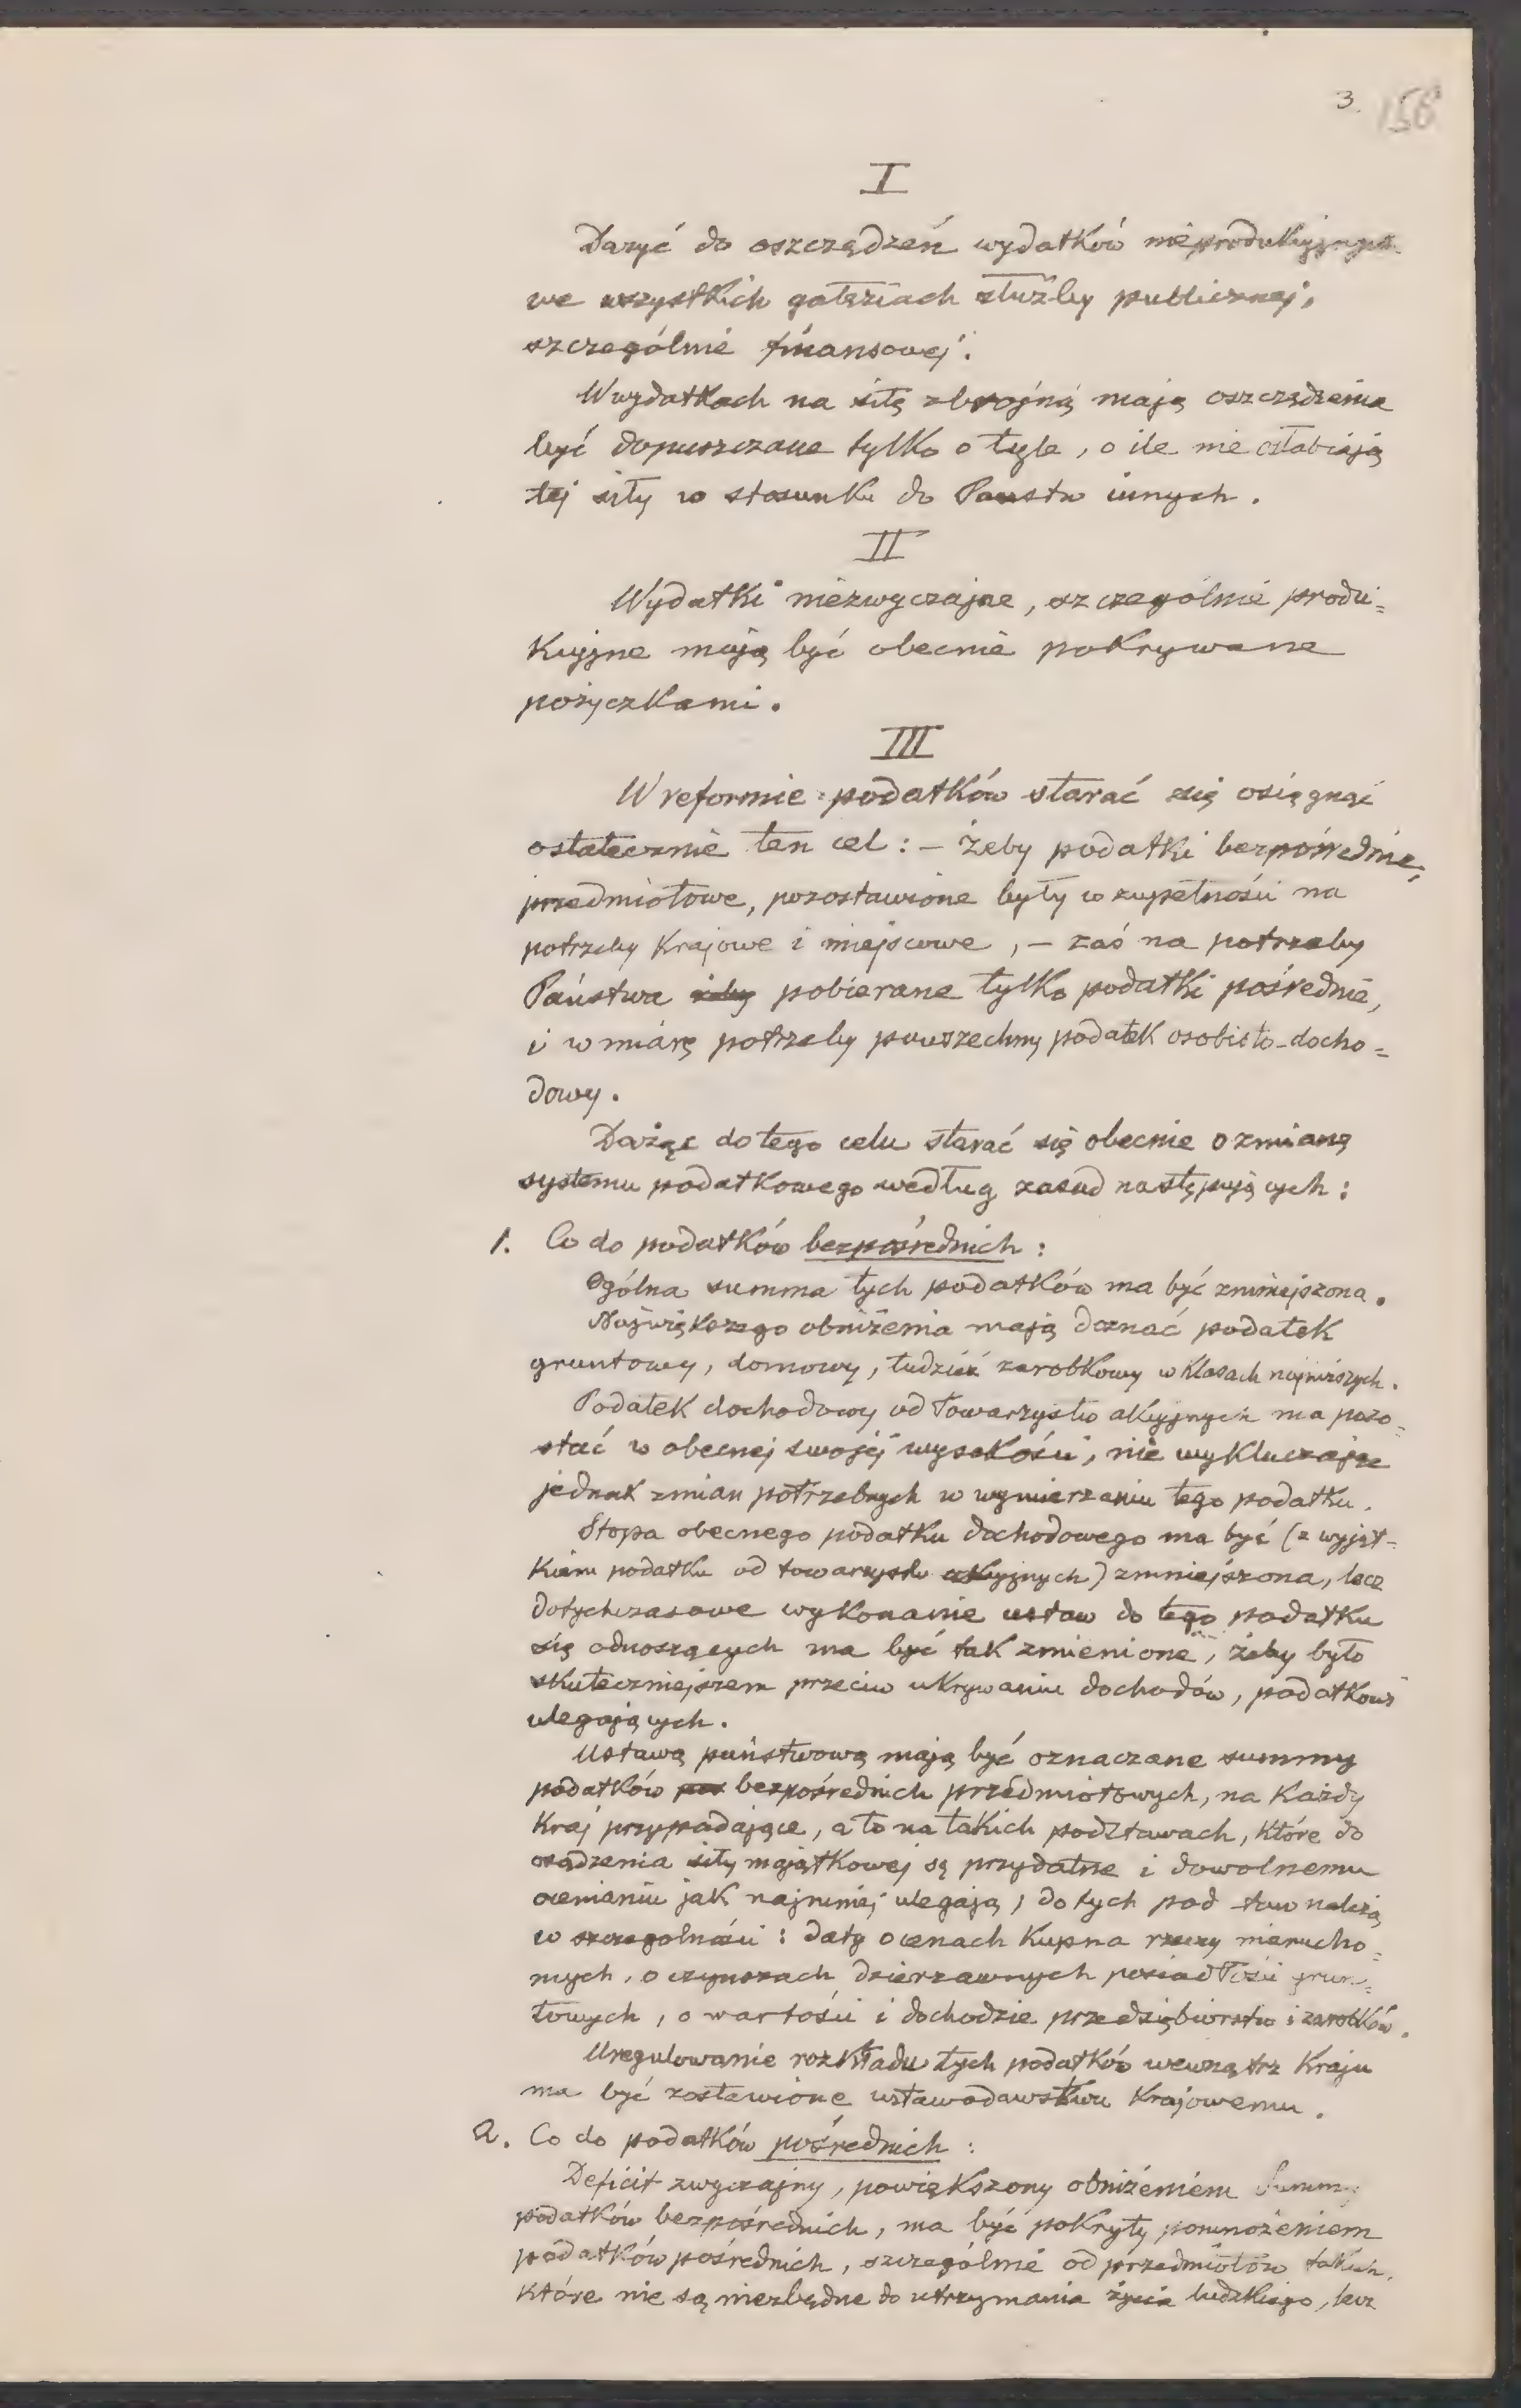 3. 156
I
Dążyć do oszczędzeń wydatków nieprodukcyjnych
we wszystkich gałęziach służby publicznej,
szczególnie finansowej.
W wydatkach na siłę zbrojną mają oszczędzenia
być dopuszczane tylko o tyle, o ile nie osłabiają
tej siły w stosunku do Państw innych.
II
Wydatki niezwyczajne, szczególnie produ=
kcyjne mają być obecnie pokrywane
pożyczkami.
III
W reformie podatków starać się osiągnąć
ostatecznie ten cel: – żeby podatki bezpośrednie,
przedmiotowe, pozostawione były w zupełności na
potrzeby krajowe i miejscowe, – zaś na potrzeby
Państwa żeby pobierane tylko podatki pośrednie,
i w miarę potrzeby powszechny podatek osobisto-docho=
dowy.
Dążąc do tego celu starać się obecnie o zmianę
systemu podatkowego według zasad następujących:
1. Co do podatków bezpośrednich:
Ogólna summa tych podatków ma być zmniejszona.
Największego obniżenia mają doznać podatek
gruntowy, domowy, tudzież zarobkowy w klasach najniższych.
Podatek dochodowy od towarzystw akcyjnych ma pozo=
stać w obecnej swojej wysokości, nie wykluczając
jednak zmian potrzebnych w wymierzaniu tego podatku.
Stopa obecnego podatku dochodowego ma być (z wyjąt=
kiem podatku od towarzystw akcyjnych) zmniejszona, lecz
dotychczasowe wykonanie ustaw do tego podatku
się odnoszących ma być tak zmienione, żeby było
skuteczniejszem przeciw ukrywaniu dochodów, podatkowi
ulegających.
Ustawą państwową mają być oznaczane summy
podatków pos bezpośrednich przedmiotowych, na każdy
kraj przypadające, a to na takich podstawach, które do
osądzenia siły majątkowej są przydatne i dowolnemu
ocenianiu jak najmniej ulegają; do tych pod staw należą
w szczególności: daty o cenach kupna rzeczy nierucho=
mych, o czynszach dzierżawnych posiadłości grun=
towych, o wartości i dochodzie przedsiębiorstw i zarobków.
Uregulowanie rozkładu tych podatków wewnątrz kraju
ma być zostawione ustawodawstwu krajowemu.
2. Co do podatków pośrednich:
Deficit zwyczajny, powiększony obniżeniem Summy
podatków bezpośrednich, ma być pokryty pomnożeniem
podatków pośrednich, szczególnie od przedmiotów takich,
które nie są niezbędne do utrzymania życia ludzkiego, lecz